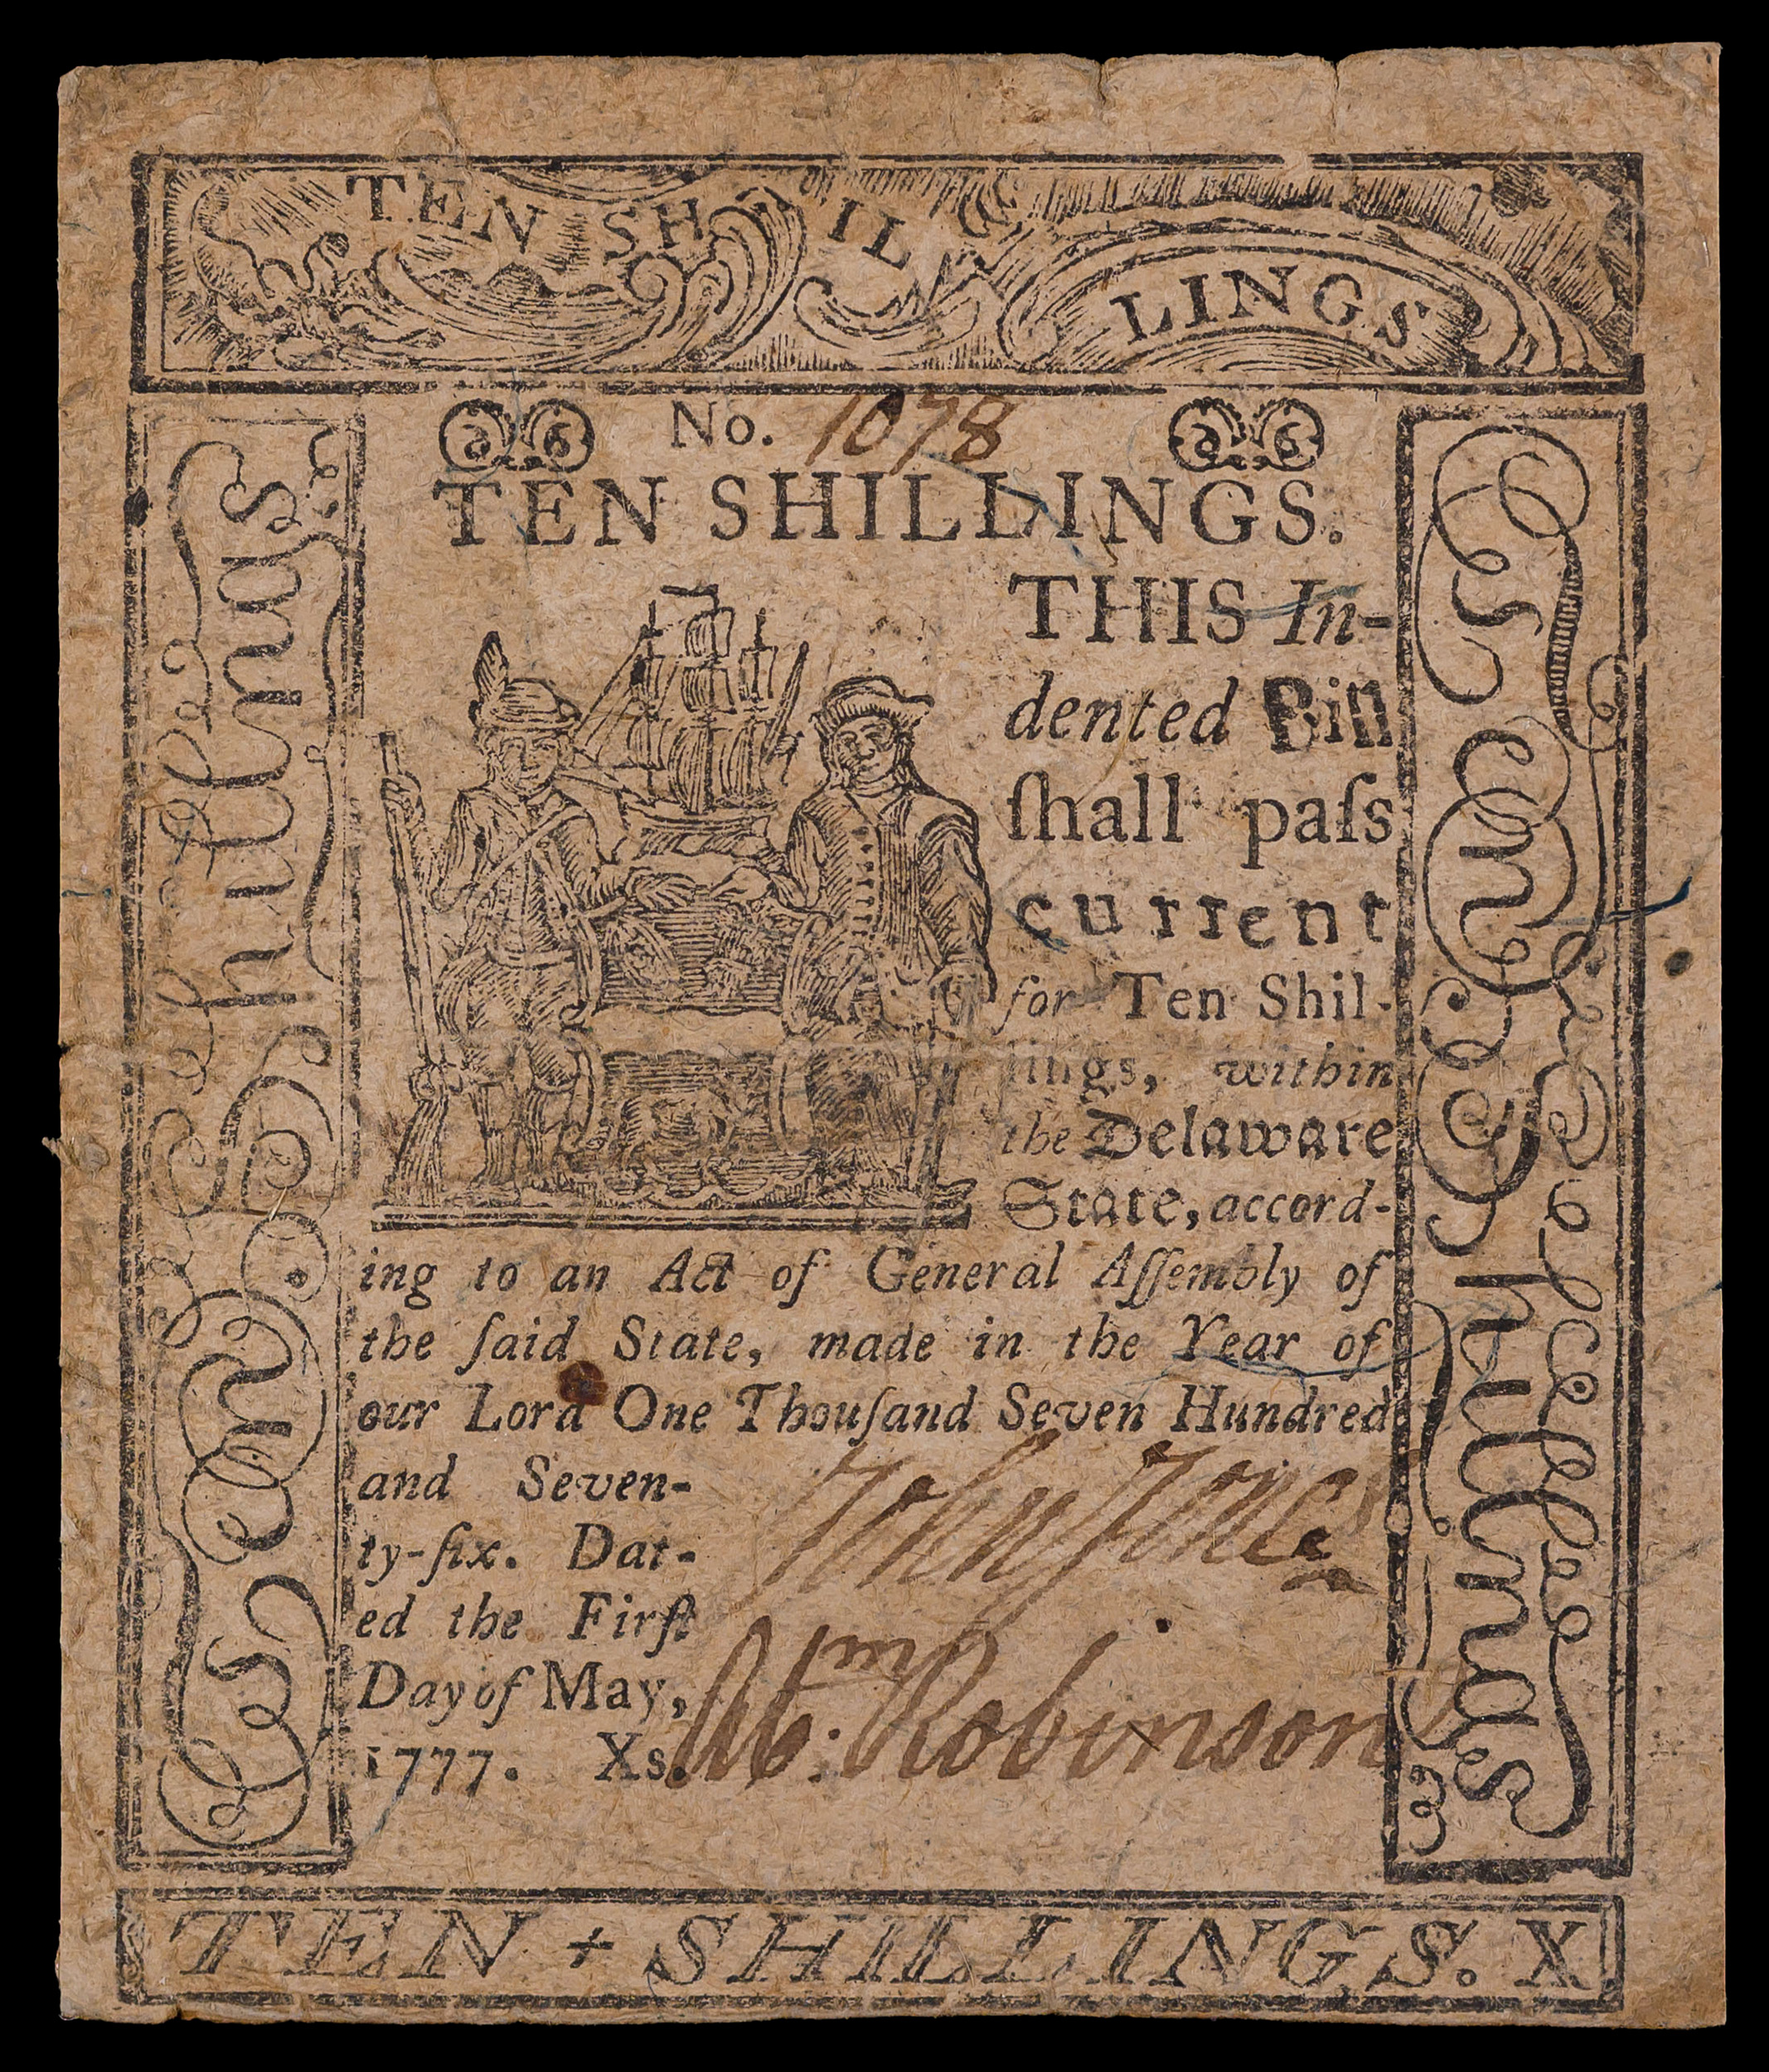 TEN SHIL
LINGS
No. 1078
TEN SHILLINGS.
THIS In-
dented Bill
ſhall paſs
current
for Ten Shil-
lings, within
the Delaware
State, accord-
ing to an Act of General Aſſembly of
the ſaid State, made in the Year of
our Lord One Thouſand Seven Hundred
and Seven-
ty-ſix. Dat-
ed the Firſt
Day of May,
1777. Xs.
John Jones
Wm. Robinson
Ten Shillings
Ten Shillings
TEN + SHILLINGS. X